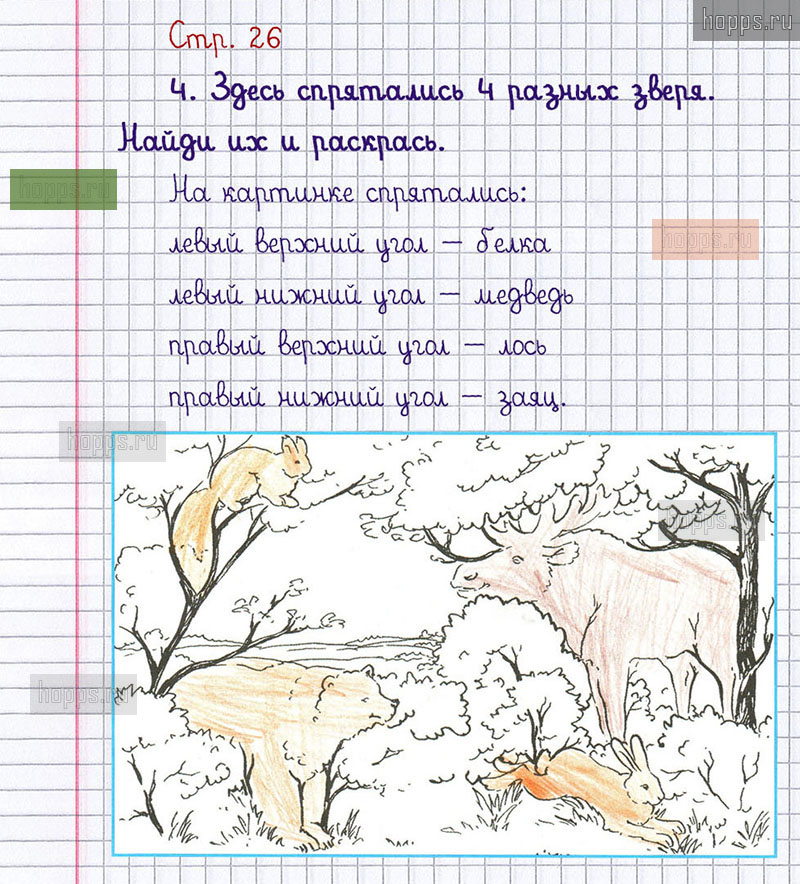 hopps.ru
Стр. 26
4. Здесь спрятались 4 разных зверя.
Найди их и раскрась.
hopps.ru
На картинке спрятались:
hopps.ru
левый верхний угол — белка
левый нижний угол — медведь
правый верхний угол — лось
правый нижний угол — заяц.
hopps.ru
hopps.ru
hopps.ru